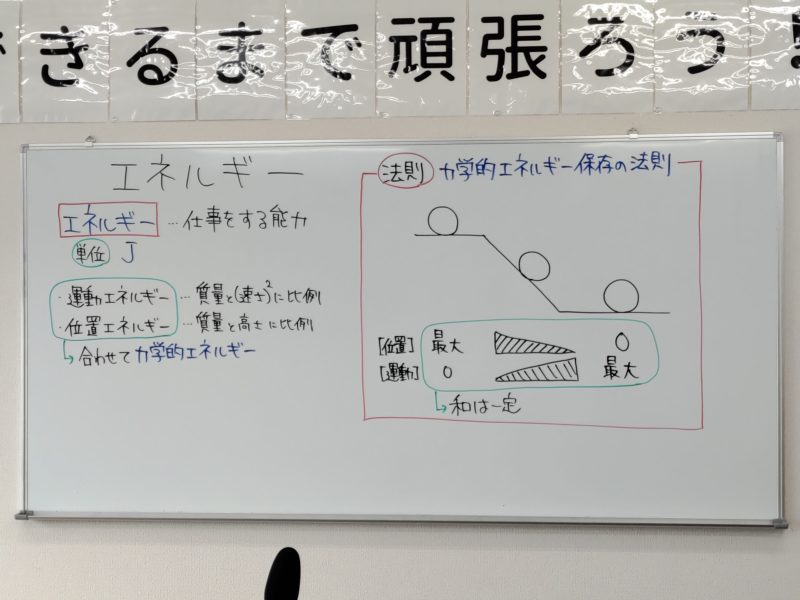 できるまで頑張ろう!
エネルギー
エネルギー … 仕事をする能力
単位 J
・運動エネルギー … 質量と(速さ)²に比例
・位置エネルギー … 質量と高さに比例
↳ 合わせて力学的エネルギー
法則 力学的エネルギー保存の法則
[位置] 最大 0
[運動] 0 最大
↳ 和は一定